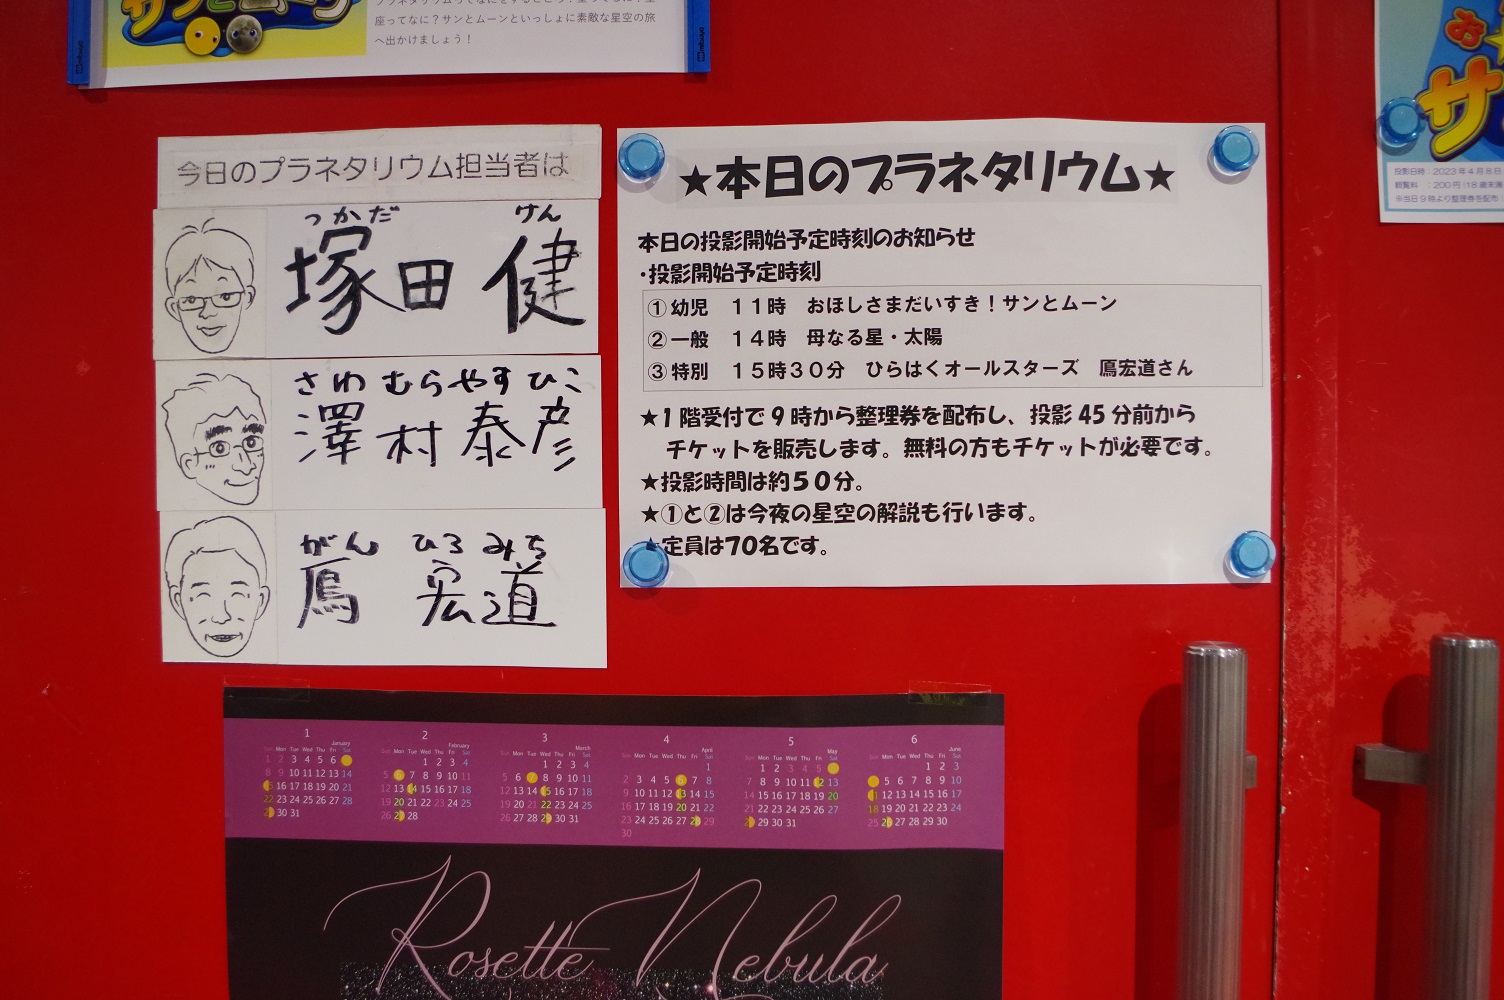 座ってなに？サンとムーンといっしょに素敵な星空の旅
へ出かけましょう！
今日のプラネタリウム担当者は
つかだ けん
塚田 健
さわ むら やす ひこ
澤村泰彦
がん ひろ みち
鴈 宏道
★本日のプラネタリウム★
本日の投影開始予定時刻のお知らせ
・投影開始予定時刻
①幼児 １１時 おほしさまだいすき！サンとムーン
②一般 １４時 母なる星・太陽
③特別 １５時３０分 ひらはくオールスターズ 鴈宏道さん
★1階受付で9時から整理券を配布し、投影45分前から
チケットを販売します。無料の方もチケットが必要です。
★投影時間は約５０分。
★①と②は今夜の星空の解説も行います。
★定員は70名です。
お
サ
投影日時：2023年4月8日
観覧料 ：200円(18歳未満
※当日9時より整理券を配布
1 January
Sun Mon Tue Wed Thu Fri Sat
1 2 3 4 5 6
8 9 10 11 12 13 14
16 17 18 19 20 21
22 23 24 25 26 27 28
30 31
2 February
Sun Mon Tue Wed Thu Fri Sat
1 2 3 4
5 7 8 9 10 11
12 13 15 16 17 18
19 20 21 22 23 24 25
26 28
3 March
Sun Mon Tue Wed Thu Fri Sat
1 2 3 4
5 6 8 9 10 11
12 13 14 16 17 18
19 20 21 22 23 24 25
26 27 28 30 31
4 April
Sun Mon Tue Wed Thu Fri Sat
1
2 3 4 5 7 8
9 10 11 12 14 15
16 17 18 19 20 21 22
23 24 25 26 27 29
30
5 May
Sun Mon Tue Wed Thu Fri Sat
1 2 3 4 5
7 8 9 10 11 13
14 15 16 17 18 19 20
21 22 23 24 25 26 27
29 30 31
6 June
Sun Mon Tue Wed Thu Fri Sat
1 2 3
5 6 7 8 9 10
12 13 14 15 16 17
18 19 20 21 22 23 24
25 27 28 29 30
Rosette Nebula